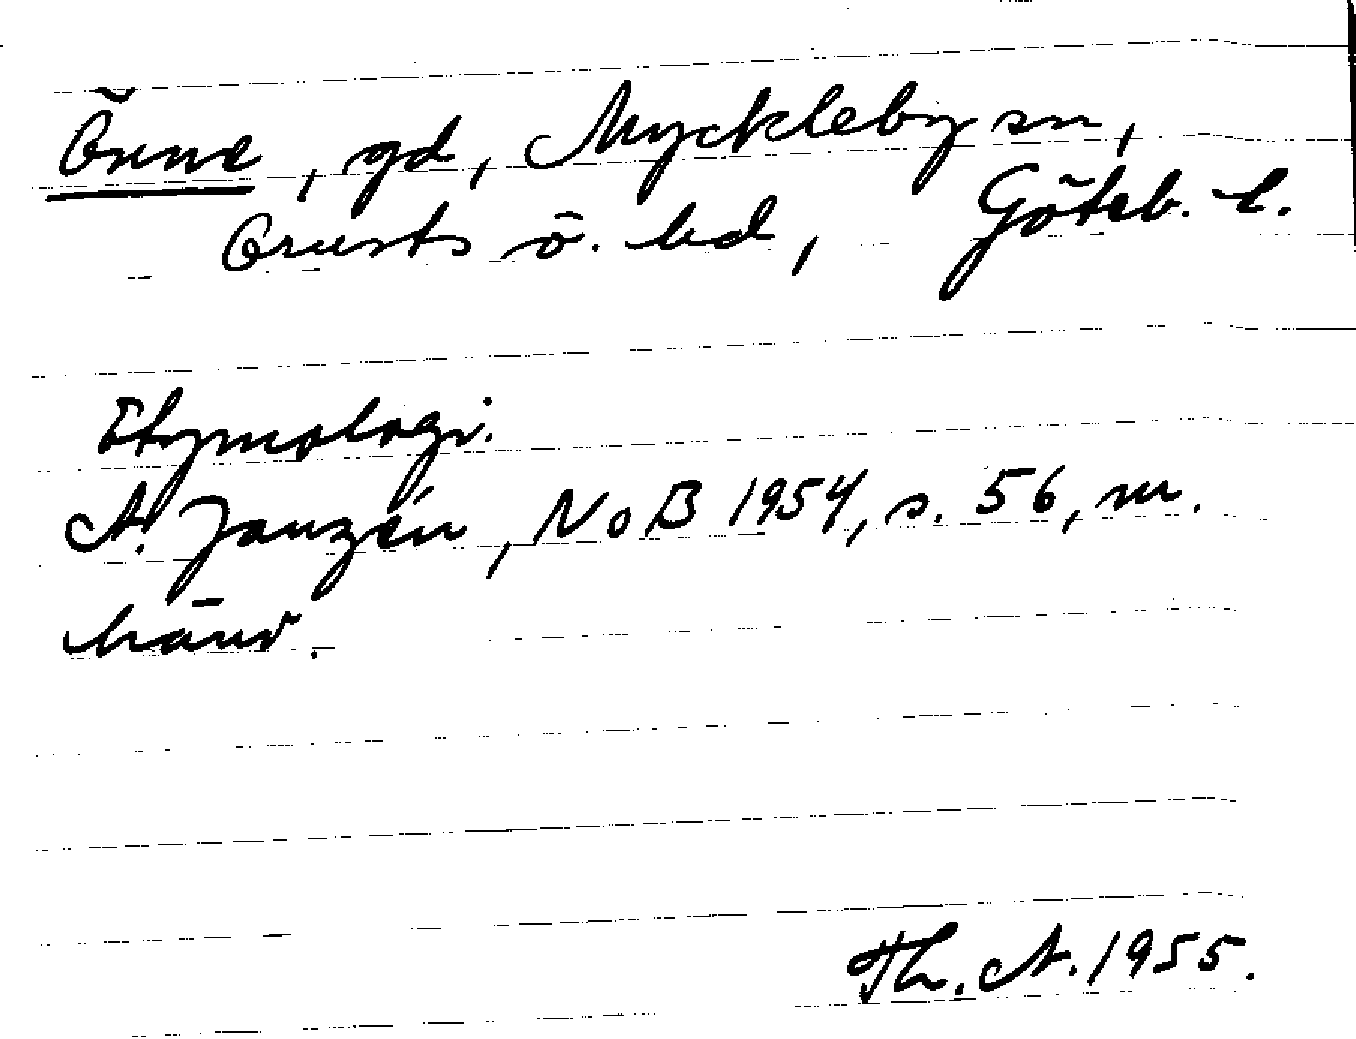 Önne, gd, Myckleby sn,
Orusts ö. hd, Göteb. l.
Etymologi.
A. Janzén, NoB 1954, s. 56, m.
hänv.
Th. A. 1955.